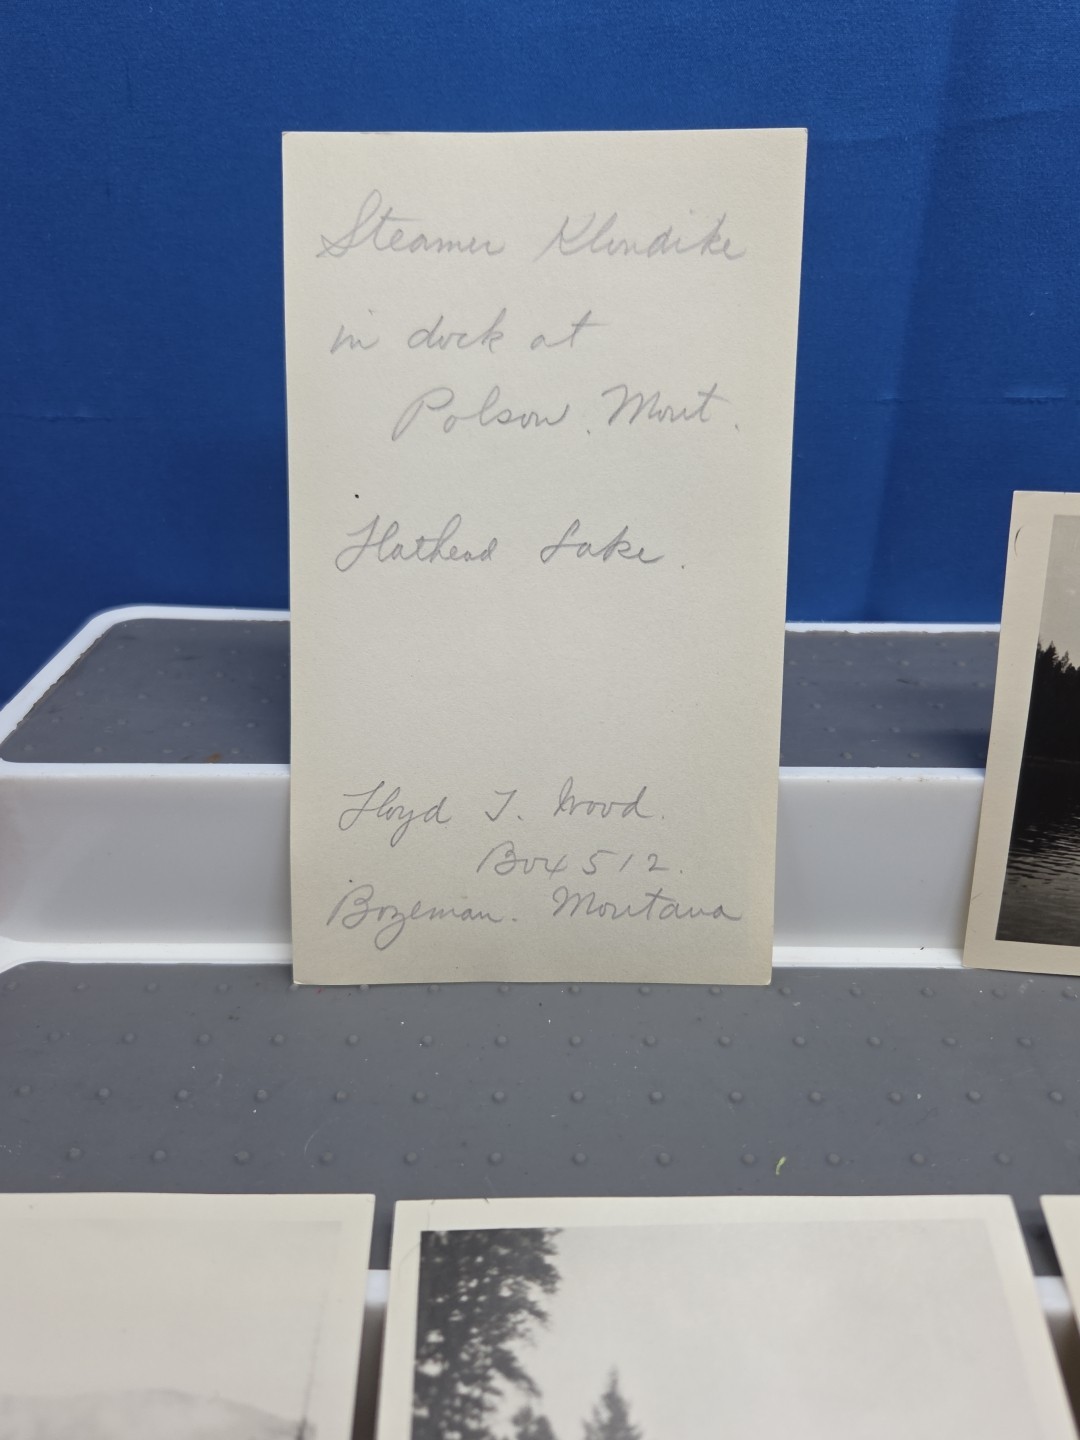 Steamer Klondike
in dock at
Polson, Mont.
Flathead Lake.
Floyd T. Wood.
Box 512.
Bozeman. Montana